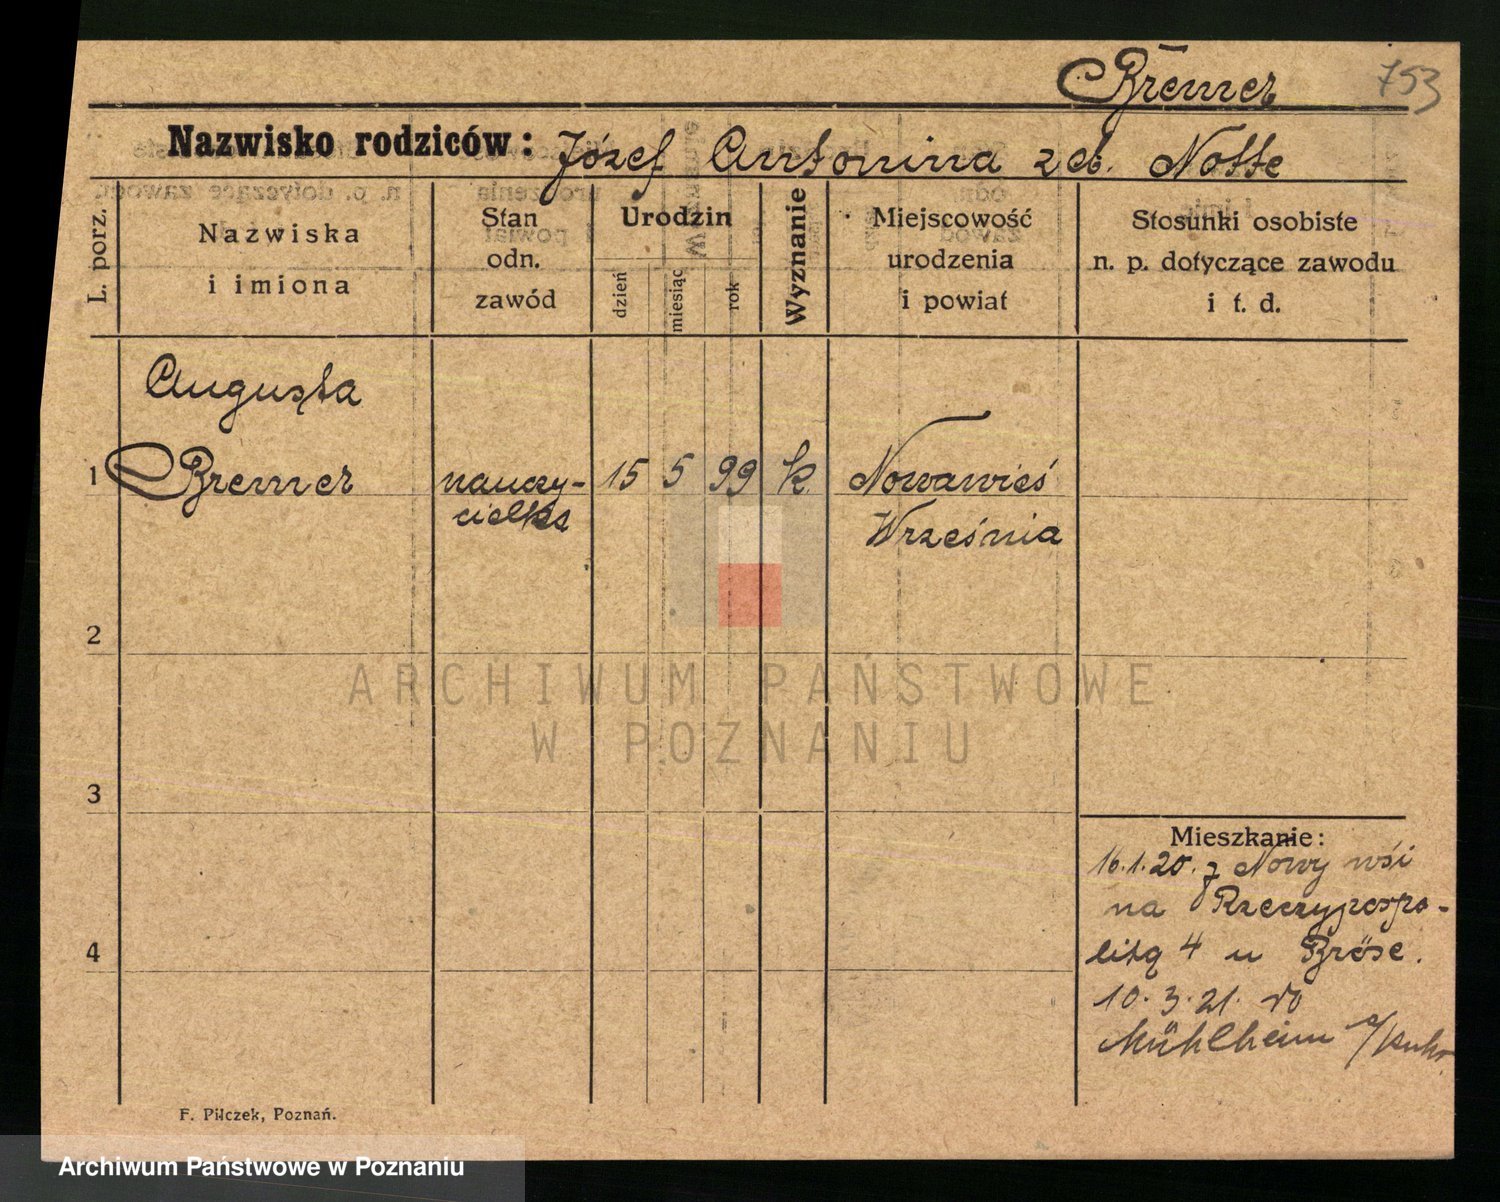 Bremer 753
Nazwisko rodziców: Józef Antonina zd. Notte
L. porz.
Nazwiska
i imiona
Stan
odn.
zawód
Urodzin
dzień
miesiąc
rok
Wyznanie
Miejscowość
urodzenia
i powiat
Stosunki osobiste
n. p. dotyczące zawodu
i t. d.
Augusta
1 Bremer nauczy- 15 5 99 k. Nowawieś
cielka Września
2
3
4
Mieszkanie:
16.1.20. z Nowy wsi
na Rzeczypospo-
litą 4 u Bröse.
10.3.21. do
Mühlheim a/Ruhr
F. Pilczek, Poznań.
ARCHIWUM PAŃSTWOWE
W POZNANIU
Archiwum Państwowe w Poznaniu